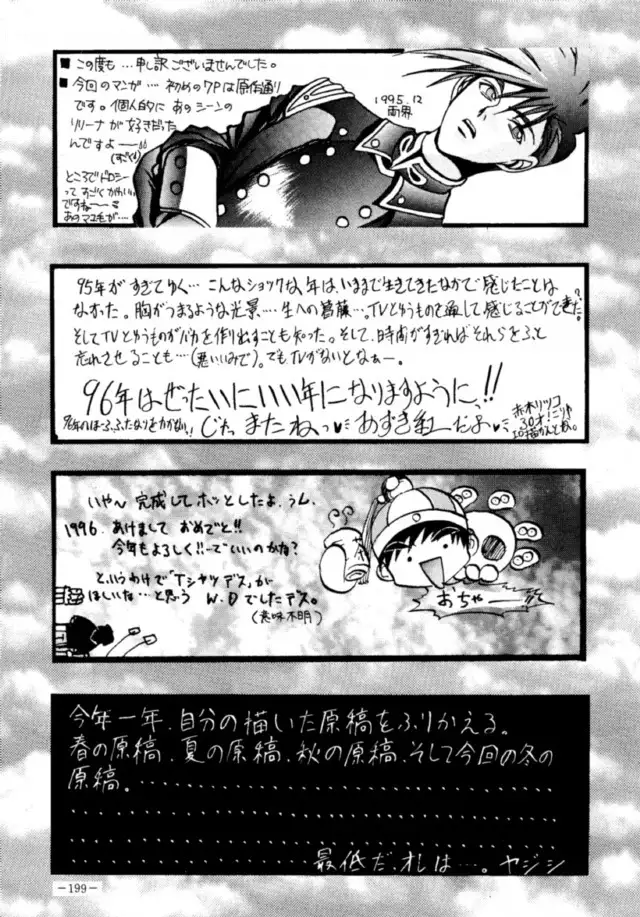 ■ この度も…申し訳ございませんでした。
■ 今回のマンガ…初めの7Pは原作通り
です。個人的にあのシーンの
リリーナが好きだった
んですよ――
ところでドロシー
ってすごくかわいい
ですね――
あのマユ毛が…
1995.12
両界
95年がすぎてゆく…こんなショックな年は、いままで生きてきたなかで感じたことは
なかった。胸がつまるような光景…生への葛藤…。TVというものを通して感じることができた。
そしてTVというものがバカを作り出すことも知った。そして、時間がすぎればそれらをふと
忘れさせることも…(悪いいみで)。でもTVがないとなぁー。
96年はぜったいにいい年になりますように!!
じゃっ またねっ♥ あずき紅だよ♥
赤木リツコ
30才!
いやーん 完成してホッとしたよ、うん。
1996. あけまして おめでと!!
今年もよろしく!!…でいいのかな?
というわけで「Tシャツデス」が
ほしいな…と思う W.Dでしたデス。
(意味不明)
おちゃー
今年一年、自分の描いた原稿をふりかえる。
春の原稿、夏の原稿、秋の原稿、そして今回の冬の
原稿。
最低だ、オレは…。ヤジシ
－199－